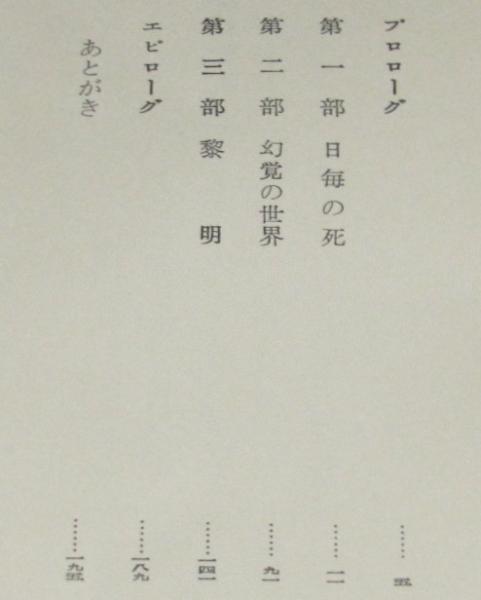 プロローグ……五
第一部 日毎の死……一一
第二部 幻覚の世界……九一
第三部 黎明……一四一
エピローグ……一八九
あとがき……一九五